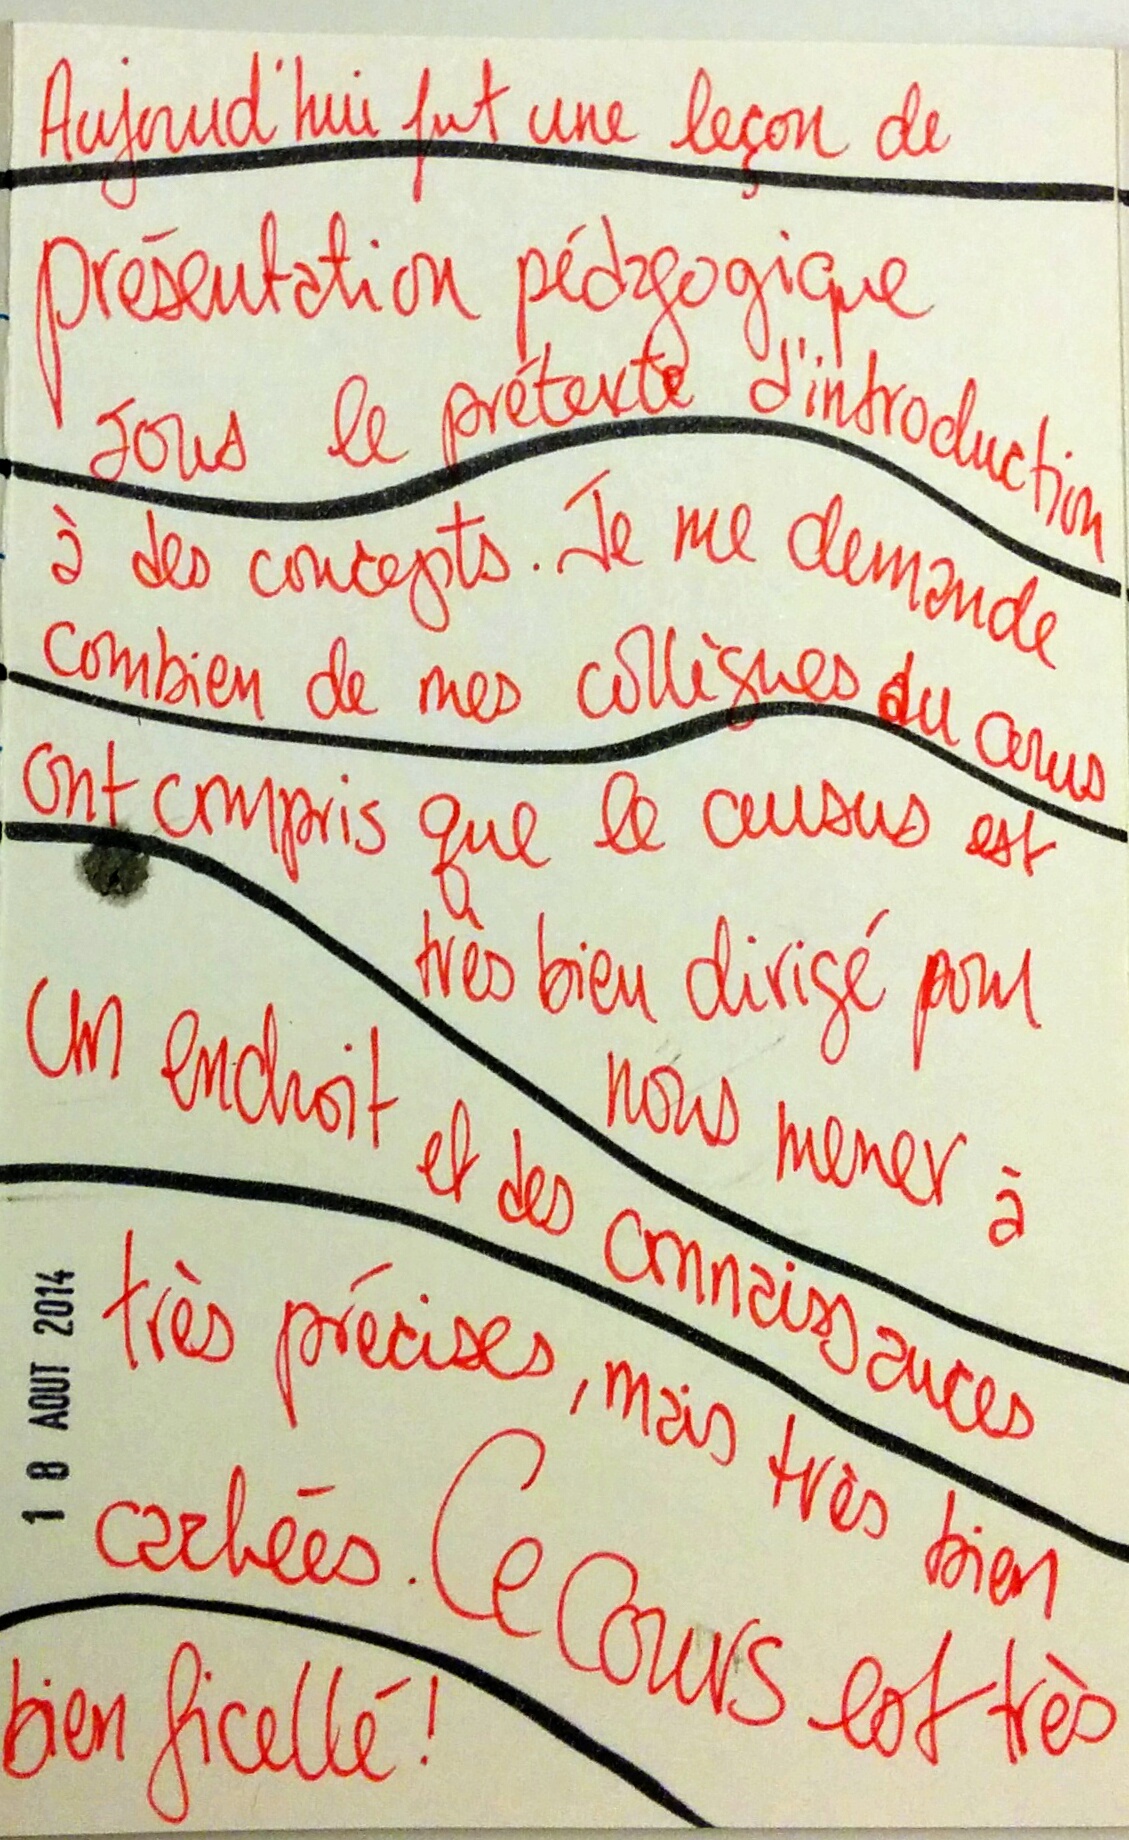 Aujourd'hui fut une leçon de
présentation pédagogique
sous le prétexte d'introduction
à des concepts. Je me demande
combien de mes collègues du cours
ont compris que le cursus est
très bien dirigé pour
nous mener à
un endroit et des connaissances
très précises, mais très bien
cachées. Ce Cours est très
bien ficellé!
18 AOUT 2014